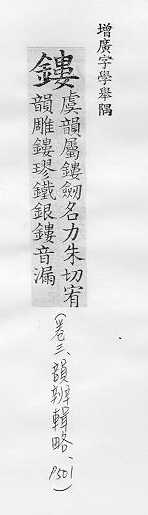 增廣字學舉隅
鏤
虞韻屬鏤劒名力朱切宥
韻雕鏤璆鐵銀鏤音漏
（卷三、韻辨輯略、P501）